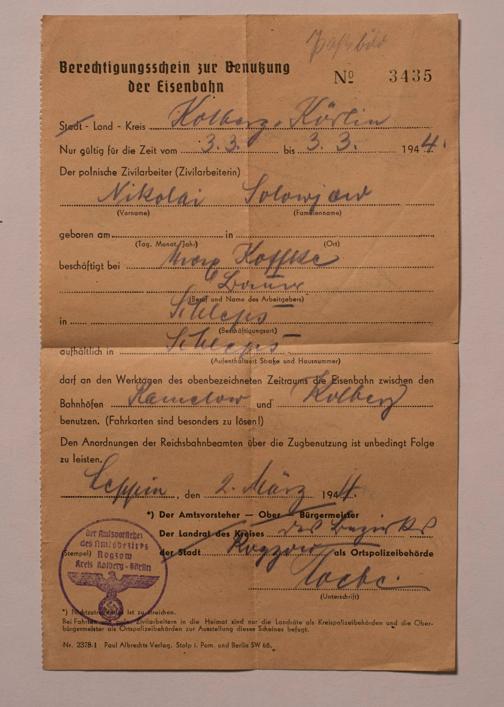 Paßbild
Berechtigungsschein zur Benutzung
der Eisenbahn
No 3435
Stadt - Land - Kreis Kolberg-Körlin
Nur gültig für die Zeit vom 3.3. bis 3.3. 1944.
Der polnische Zivilarbeiter (Zivilarbeiterin)
Nikolai Solowjew
(Vorname) (Familienname)
geboren am in
(Tag, Monat, Jahr) (Ort)
beschäftigt bei
Bauer
(Beruf und Name des Arbeitgebers)
in Schleps
(Beschäftigungsort)
aufhältlich in Schleps
(Aufenthaltsort Straße und Hausnummer)
darf an den Werktagen des obenbezeichneten Zeitraums die Eisenbahn zwischen den
Bahnhöfen Ramelow und Kolberg
benutzen. (Fahrkarten sind besonders zu lösen!)
Den Anordnungen der Reichsbahnbeamten über die Zugbenutzung ist unbedingt Folge
zu leisten.
Leppin, den 2. März 1944
*) Der Amtsvorsteher — Ober — Bürgermeister
Der Landrat des Kreises des Bezirks
der Stadt Rogzow als Ortspolizeibehörde
(Unterschrift)
(Stempel)
Der Amtsvorsteher
des Amtsbezirks
Rogzow
Kreis Kolberg-Körlin
*) Nichtzutreffendes ist zu streichen.
Bei Fahrten der Zivilarbeiter in die Heimat sind nur die Landräte als Kreispolizeibehörden und die Ober-
bürgermeister als Ortspolizeibehörden zur Ausstellung dieses Scheines befugt.
Nr. 2378.1 Paul Albrechts Verlag, Stolp i. Pom. und Berlin SW 68.